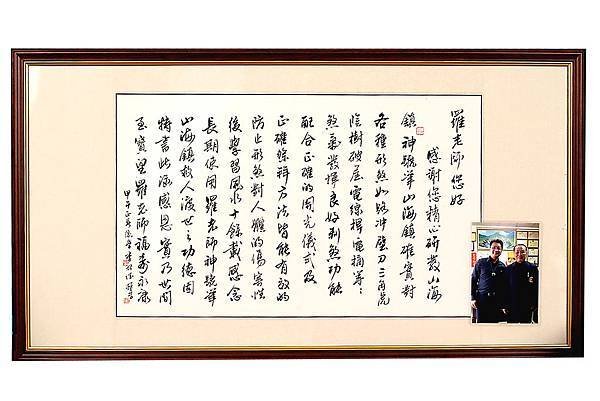 羅老師您好
感謝您精心研發山海
鎮神號牌山海鎮確實對
各種形煞如路沖壁刀三角荒
陰樹破屋電線桿電桶等：
煞氣發揮良好制煞功能
配合正確的開光儀式及
正確方法皆能有效的
防止形煞對人體的傷害性
後學習風水十餘載感念
長期使用羅老師神號牌
山海鎮救人渡世之功德因
特書此函感恩實乃世間
至寶望羅老師福壽永康
甲午正月